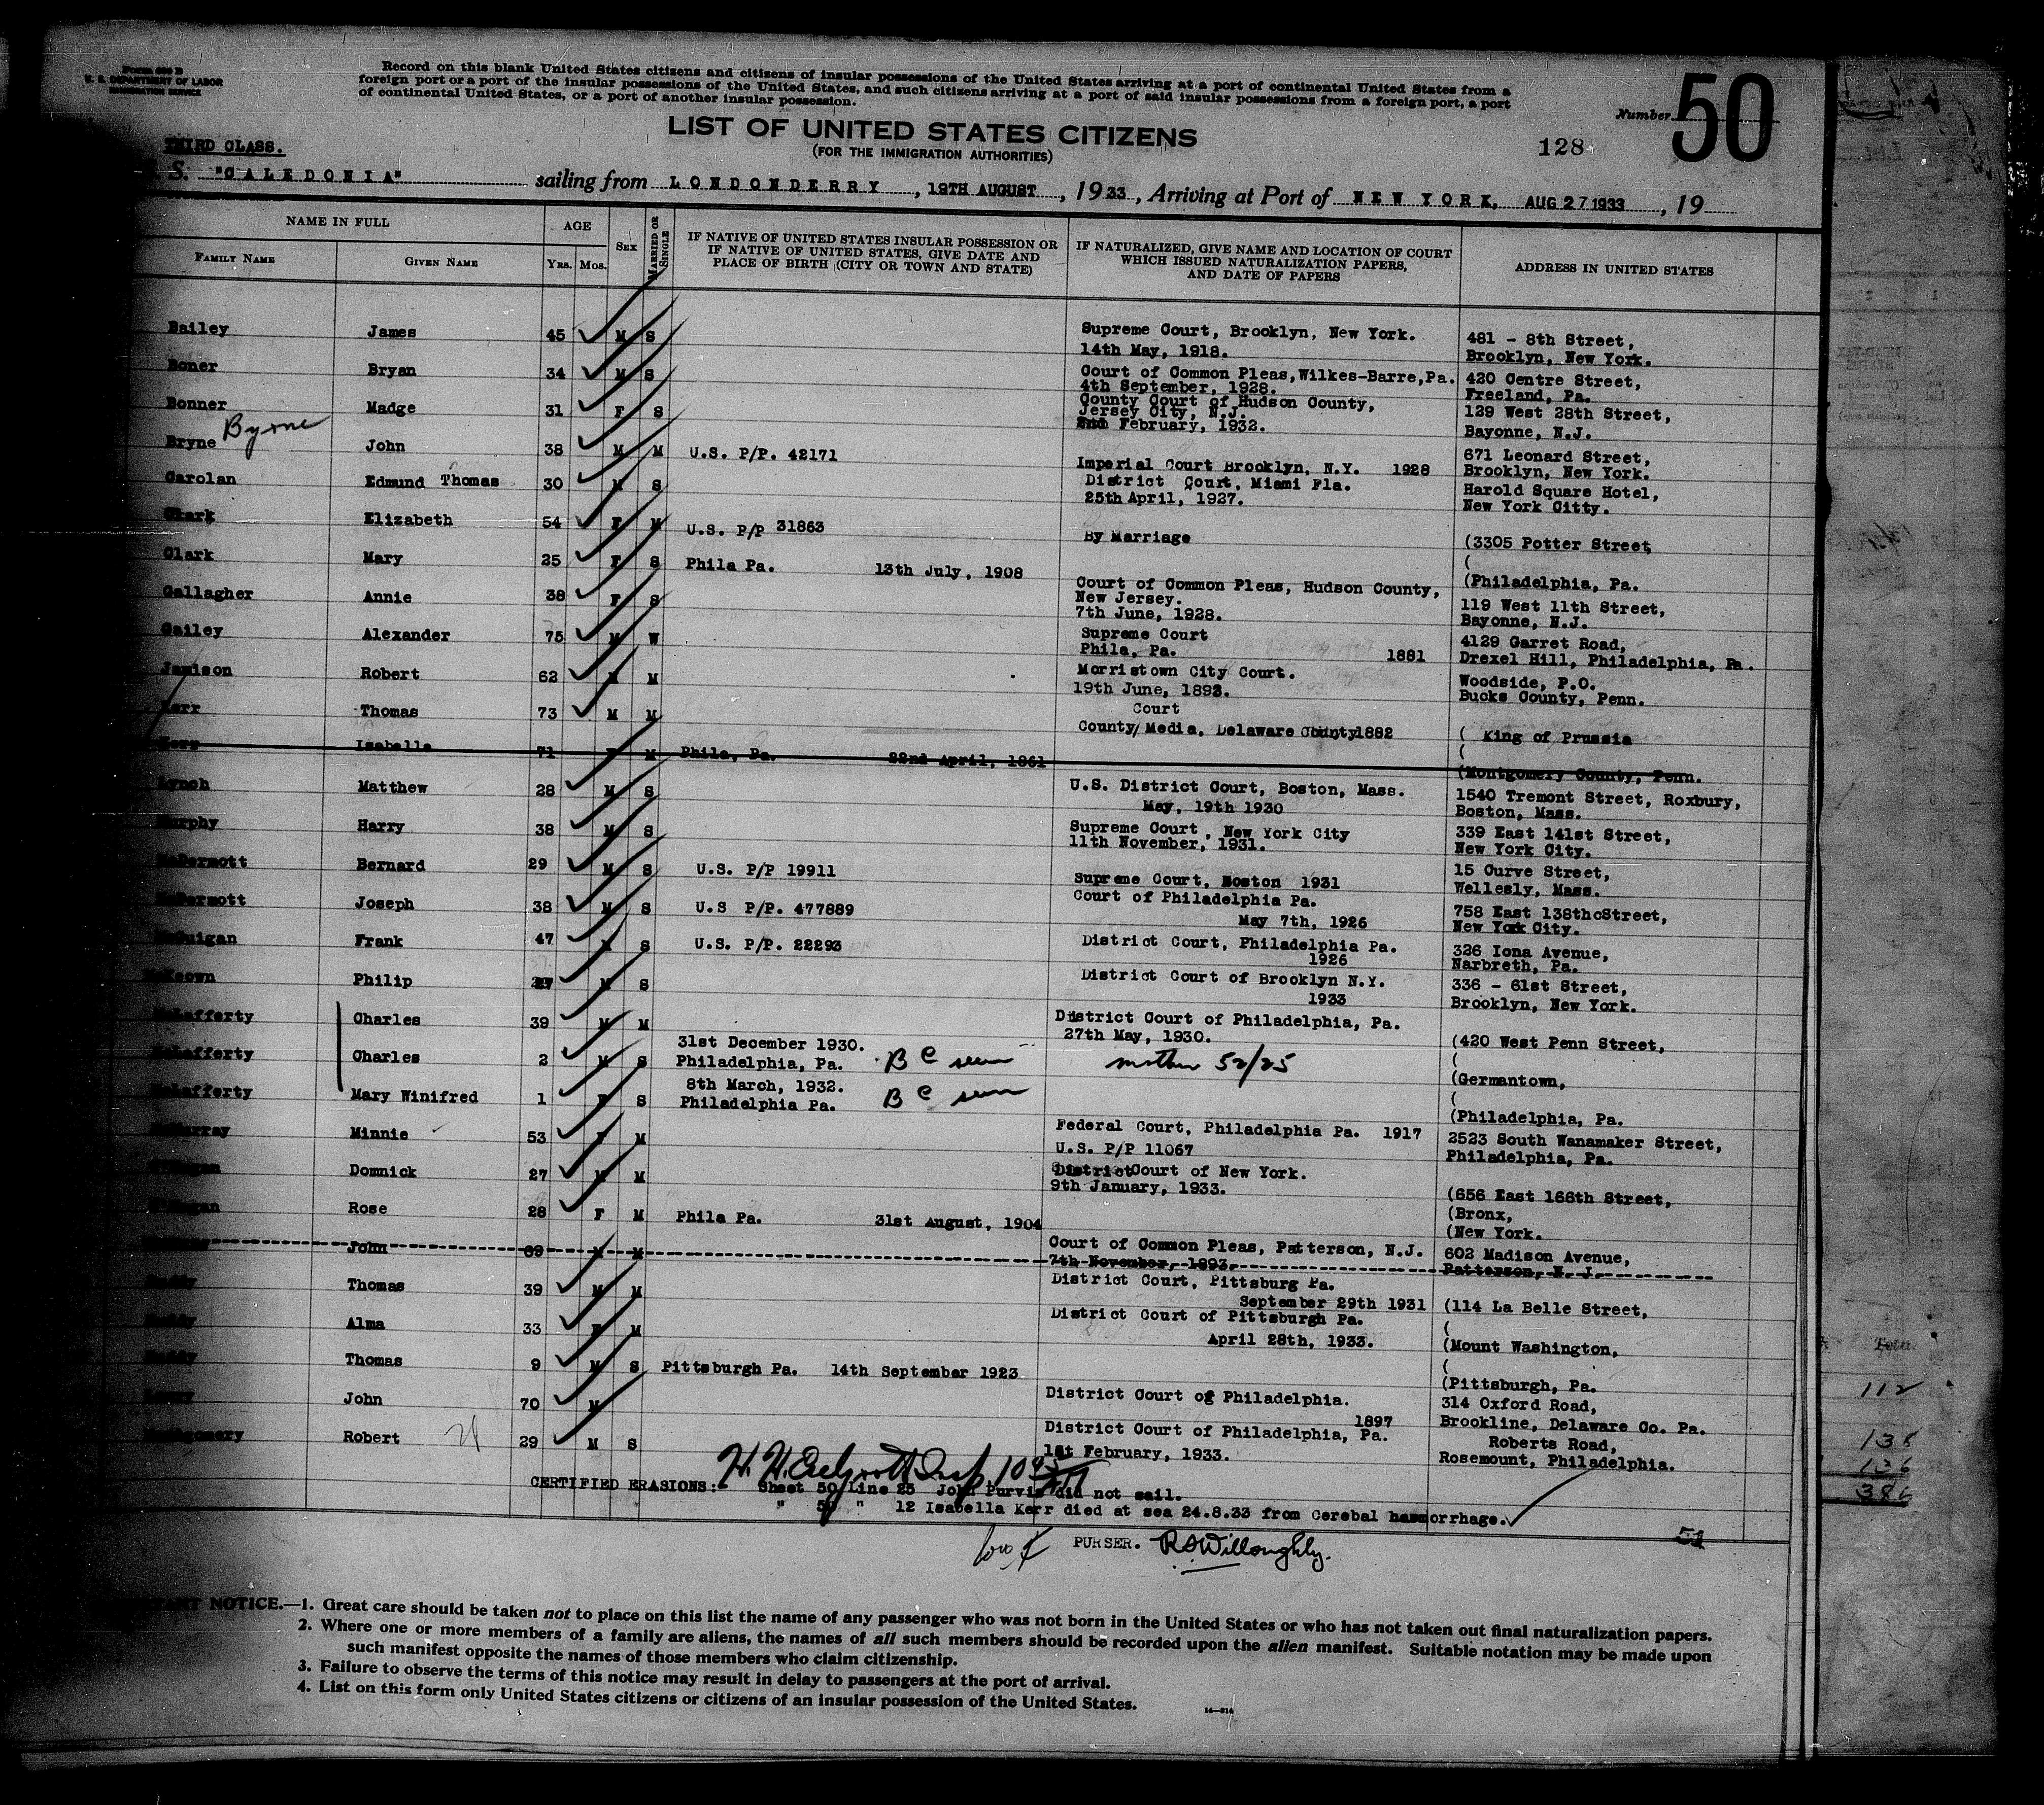 Form 630 B
U. S. DEPARTMENT OF LABOR
IMMIGRATION SERVICE
Record on this blank United States citizens and citizens of insular possessions of the United States arriving at a port of continental United States from a
foreign port or a port of the insular possessions of the United States, and such citizens arriving at a port of said insular possessions from a foreign port, a port
of continental United States, or a port of another insular possession.
Number 50
LIST OF UNITED STATES CITIZENS
(FOR THE IMMIGRATION AUTHORITIES)
128
THIRD CLASS.
S. "CALEDONIA" sailing from LONDONDERRY, 19TH AUGUST, 1933, Arriving at Port of NEW YORK, AUG 27 1933, 19
NAME IN FULL AGE SEX MARRIED OR SINGLE IF NATIVE OF UNITED STATES INSULAR POSSESSION OR IF NATIVE OF UNITED STATES, GIVE DATE AND PLACE OF BIRTH (CITY OR TOWN AND STATE) IF NATURALIZED, GIVE NAME AND LOCATION OF COURT WHICH ISSUED NATURALIZATION PAPERS, AND DATE OF PAPERS ADDRESS IN UNITED STATES
FAMILY NAME GIVEN NAME YRS. MOS.
Bailey James 45 M S Supreme Court, Brooklyn, New York. 481 - 8th Street,
14th May, 1918. Brooklyn, New York.
Boner Bryan 34 M S Court of Common Pleas, Wilkes-Barre, Pa. 420 Centre Street,
4th September, 1928. Freeland, Pa.
Bonner Madge 31 F S County Court of Hudson County, 129 West 28th Street,
Jersey City, N.J.
2nd February, 1932. Bayonne, N.J.
Byrne
Bryne John 38 M M U.S. P/P. 42171 671 Leonard Street,
Imperial Court Brooklyn, N.Y. 1928 Brooklyn, New York.
Carolan Edmund Thomas 30 M S District Court, Miami Fla. Harold Square Hotel,
25th April, 1927. New York Citty.
Elizabeth 54 F M U.S. P/P 31863 By Marriage (3305 Potter Street
(
Clark Mary 25 F S Phila Pa. 13th July, 1908 (Philadelphia, Pa.
Gallagher Annie 38 F S Court of Common Pleas, Hudson County, 119 West 11th Street,
New Jersey.
7th June, 1928. Bayonne, N.J.
Gailey Alexander 75 M W Supreme Court 4129 Garret Road,
Phila, Pa. 1881 Drexel Hill, Philadelphia, Pa.
Jamison Robert 62 M M Morristown City Court. Woodside, P.O.
19th June, 1893. Bucks County, Penn.
Kerr Thomas 73 M M Court
County/Media, Delaware County 1882 ( King of Prussia
(
Kerr Isabella 71 F M Phila, Pa. 22nd April, 1861 (Montgomery County, Penn.
Lynch Matthew 28 M S U.S. District Court, Boston, Mass. 1540 Tremont Street, Roxbury,
May, 19th 1930 Boston, Mass.
Murphy Harry 38 M S Supreme Court, New York City 339 East 141st Street,
11th November, 1931. New York City.
McDermott Bernard 29 M S U.S. P/P 19911 15 Curve Street,
Supreme Court, Boston 1931 Wellesly, Mass.
McDermott Joseph 38 M S U.S P/P. 477889 Court of Philadelphia Pa. 758 East 138thcStreet,
May 7th, 1926 New York City.
McGuigan Frank 47 M S U.S. P/P. 22293 District Court, Philadelphia Pa. 326 Iona Avenue,
1926 Narbreth, Pa.
McKeown Philip M S District Court of Brooklyn N.Y. 336 - 61st Street,
1933 Brooklyn, New York.
McLafferty Charles 39 M M District Court of Philadelphia, Pa.
27th May, 1930. (420 West Penn Street,
31st December 1930.
McLafferty Charles 2 M S Philadelphia, Pa. B C seen mother 52/25 (
(Germantown,
8th March, 1932.
McLafferty Mary Winifred 1 F S Philadelphia Pa. B C seen (
(Philadelphia, Pa.
McMurray Minnie 53 F M Federal Court, Philadelphia Pa. 1917 2523 South Wanamaker Street,
U.S. P/P 11067 Philadelphia, Pa.
Domnick 27 M M District Court of New York.
9th January, 1933. (656 East 166th Street,
Rose 28 F M Phila Pa. 31st August, 1904 (Bronx,
(New York.
John 69 M M Court of Common Pleas, Patterson, N.J. 602 Madison Avenue,
7th November, 1893. Patterson, N.J.
Thomas 39 M M District Court, Pittsburg Pa.
September 29th 1931 (114 La Belle Street,
Alma 33 F M District Court of Pittsburgh Pa. (
April 28th, 1933. (Mount Washington,
Thomas 9 M S Pittsburgh Pa. 14th September 1923 (
(Pittsburgh, Pa.
John 70 M District Court og Philadelphia. 314 Oxford Road,
1897 Brookline, Delaware Co. Pa.
Montgomery Robert 29 M S District Court of Philadelphia, Pa. Roberts Road,
1st February, 1933. Rosemount, Philadelphia.
CERTIFIED ERASIONS:- Sheet 50 Line 25 John Purvis did not sail.
" 50 " 12 Isabella Kerr died at sea 24.8.33 from Cerebal haemorrhage.
PURSER. R Willoughby.
NOTICE.—1. Great care should be taken not to place on this list the name of any passenger who was not born in the United States or who has not taken out final naturalization papers.
2. Where one or more members of a family are aliens, the names of all such members should be recorded upon the alien manifest. Suitable notation may be made upon
such manifest opposite the names of those members who claim citizenship.
3. Failure to observe the terms of this notice may result in delay to passengers at the port of arrival.
4. List on this form only United States citizens or citizens of an insular possession of the United States.
112
138
136
386